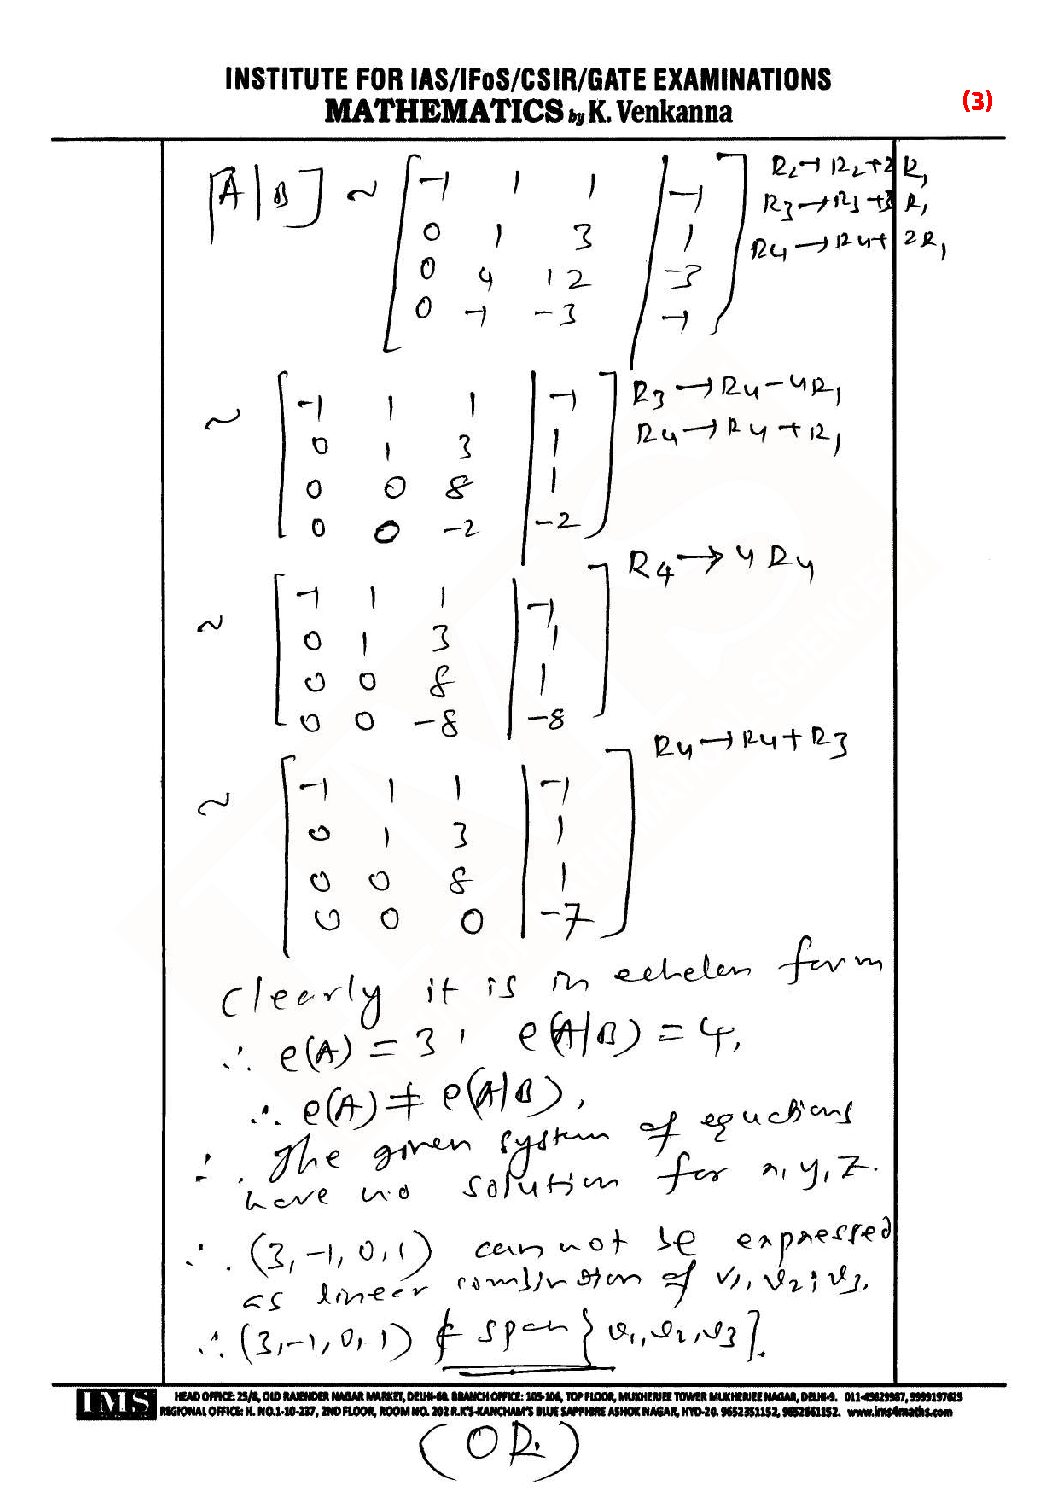 INSTITUTE FOR IAS/IFoS/CSIR/GATE EXAMINATIONS
MATHEMATICS by K. Venkanna
(3)
[A|B] ~ [ -1 1 1 | -1 ] R2→R2+2R1
0 1 3 | 1 R3→R3+3R1
0 4 12 | -3 R4→R4+2R1
0 -1 -3 | -1
~ [ -1 1 1 | -1 ] R3→R4-4R1
0 1 3 | 1 R4→R4+R1
0 0 8 | 1
0 0 -2 | -2
~ [ -1 1 1 | -1 ] R4→4R4
0 1 3 | 1
0 0 8 | 1
0 0 -8 | -8
~ [ -1 1 1 | -1 ] R4→R4+R3
0 1 3 | 1
0 0 8 | 1
0 0 0 | -7
Clearly it is in echelon form
∴ ρ(A) = 3, ρ(A|B) = 4,
∴ ρ(A) ≠ ρ(A|B),
∴ The given system of equations
have no solution for x, y, z.
∴ (3, -1, 0, 1) can not be expressed
as linear combination of v1, v2, v3.
∴ (3, -1, 0, 1) ∉ span {v1, v2, v3}.
IMS
HEAD OFFICE: 25/8, OLD RAJENDER NAGAR MARKET, DELHI-60. BRANCH OFFICE: 105-106, TOP FLOOR, MUKHERJEE TOWER MUKHERJEE NAGAR, DELHI-9. 011-45629987, 9999197625
REGIONAL OFFICE: H. NO.1-10-237, 2ND FLOOR, ROOM NO. 202 R.K'S-KANCHAM'S BLUE SAPPHIRE ASHOK NAGAR, HYD-20. 9652351152, 9652661152. www.ims4maths.com
(OR)